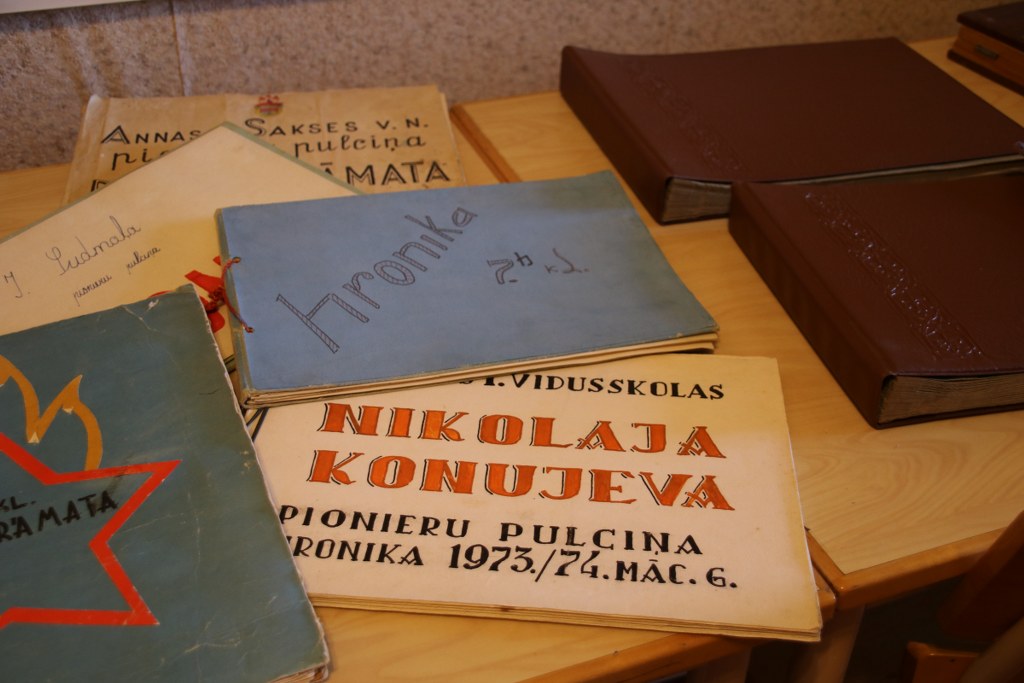 ANNAS SAKSES V. N.
pulciņa
ĀMATA
J. Sudmala
pionieru pulciņa
Hronika
7.b kl.
KL.
RĀMATA
1. VIDUSSKOLAS
NIKOLAJA
KONUJEVA
PIONIERU PULCIŅA
HRONIKA 1973./74. MĀC. G.